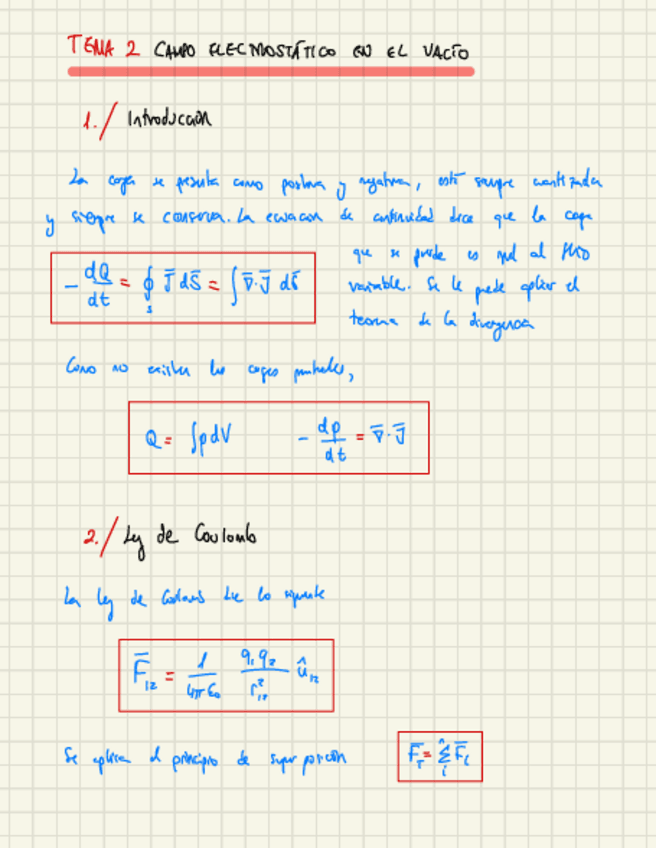 TEMA 2 CAMPO ELECTROSTÁTICO EN EL VACÍO
1./ Introducción
La carga se presenta como positiva y negativa, está siempre cuantizada
y siempre se conserva. La ecuación de continuidad dice que la carga
que se pierde es igual al flujo
-dQ/dt = ∮s J̄ dS̄ = ∫ ∇̄·J̄ dS̄
variable. Se le puede aplicar el
teorema de la divergencia
Como no existen las cargas puntuales,
Q = ∫ρdV   -dρ/dt = ∇̄·J̄
2./ Ley de Coulomb
La ley de Coulomb dice lo siguiente
F̄₁₂ = 1/4πε₀ q₁q₂/r₁₂² û₁₂
Se aplica el principio de superposición
F̄T = Σᵢⁿ F̄ᵢ